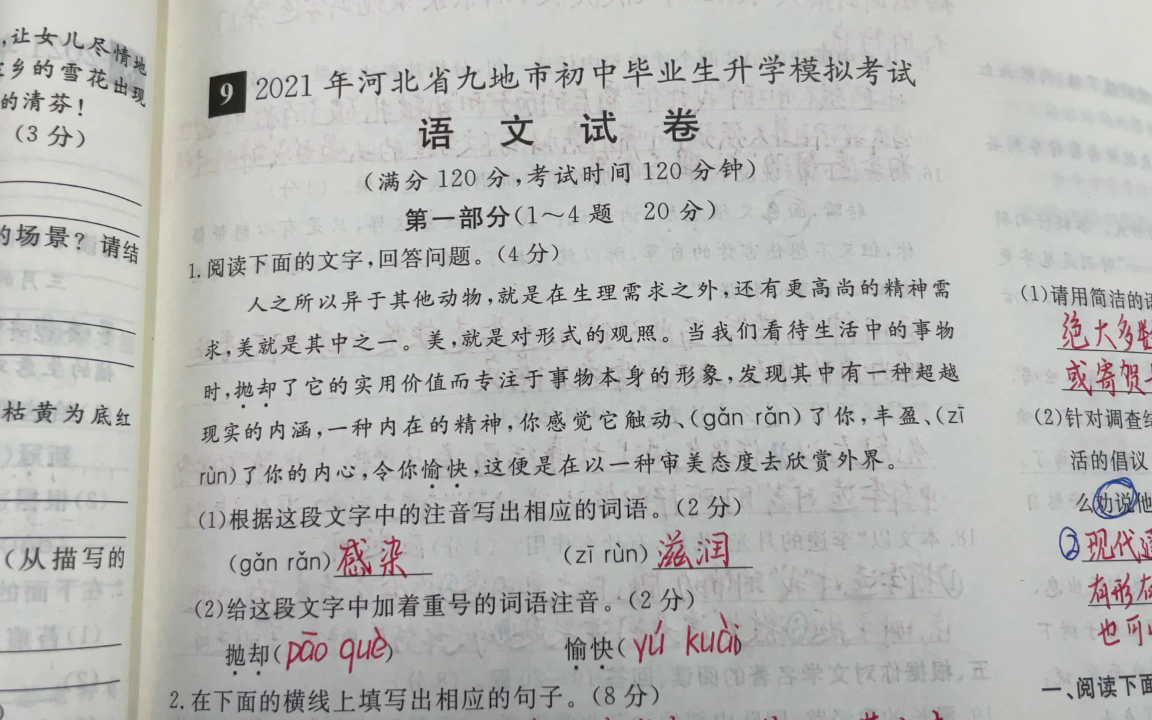 ,让女儿尽情地
乡的雪花出现
的清芬!
(3分)
的场景?请结
枯黄为底红
(从描写的
9 2021年河北省九地市初中毕业生升学模拟考试
语文试卷
(满分120分,考试时间120分钟)
第一部分(1~4题 20分)
1.阅读下面的文字,回答问题。(4分)
人之所以异于其他动物,就是在生理需求之外,还有更高尚的精神需
求,美就是其中之一。美,就是对形式的观照。当我们看待生活中的事物
时,抛却了它的实用价值而专注于事物本身的形象,发现其中有一种超越
现实的内涵,一种内在的精神,你感觉它触动、(gǎn rǎn)了你,丰盈、(zī
rùn)了你的内心,令你愉快,这便是在以一种审美态度去欣赏外界。
(1)根据这段文字中的注音写出相应的词语。(2分)
(gǎn rǎn)感染 (zī rùn)滋润
(2)给这段文字中加着重号的词语注音。(2分)
抛却(pāo què) 愉快(yú kuài)
2.在下面的横线上填写出相应的句子。(8分)
(1)请用简洁的语
绝大多数
或寄贺
(2)针对调查结
活的倡议
么劝说他
②现代通
有形
也可
一、阅读下面